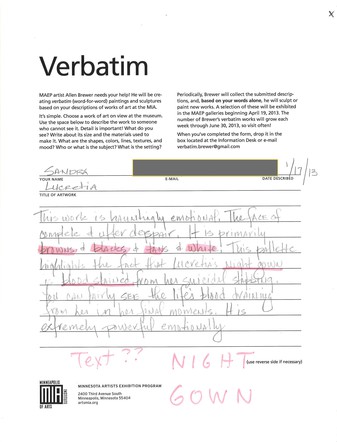 x
Verbatim
MAEP artist Allen Brewer needs your help! He will be cre-
ating verbatim (word-for-word) paintings and sculptures
based on your descriptions of works of art at the MIA.
It's simple. Choose a work of art on view at the museum.
Use the space below to describe the work to someone
who cannot see it. Detail is important! What do you
see? Write about its size and the materials used to
make it. What are the shapes, colors, lines, textures, and
mood? Who or what is the subject? What is the setting?
Periodically, Brewer will collect the submitted descrip-
tions, and, based on your words alone, he will sculpt or
paint new works. A selection of these will be exhibited
in the MAEP galleries beginning April 19, 2013. The
number of Brewer's verbatim works will grow each
week through June 30, 2013, so visit often!
When you've completed the form, drop it in the
box located at the Information Desk or e-mail
verbatim.brewer@gmail.com
Sandra 1/17/13
YOUR NAME E-MAIL DATE DESCRIBED
Lucretia
TITLE OF ARTWORK
This work is hauntingly emotional. The face of
complete & utter despair. It is primarily
browns & & tans & white. This pallette
highlights the fact that Lucretia's night gown
is blood stained from her suicidal stabbing.
You can fairly see the life's blood draining
from her in her final moments. It is
extremely powerful emotionally
Text ?? NIGHT (use reverse side if necessary)
GOWN
MINNEAPOLIS
MIA
INSTITUTE
OF ARTS
MINNESOTA ARTISTS EXHIBITION PROGRAM
2400 Third Avenue South
Minneapolis, Minnesota 55404
artsmia.org